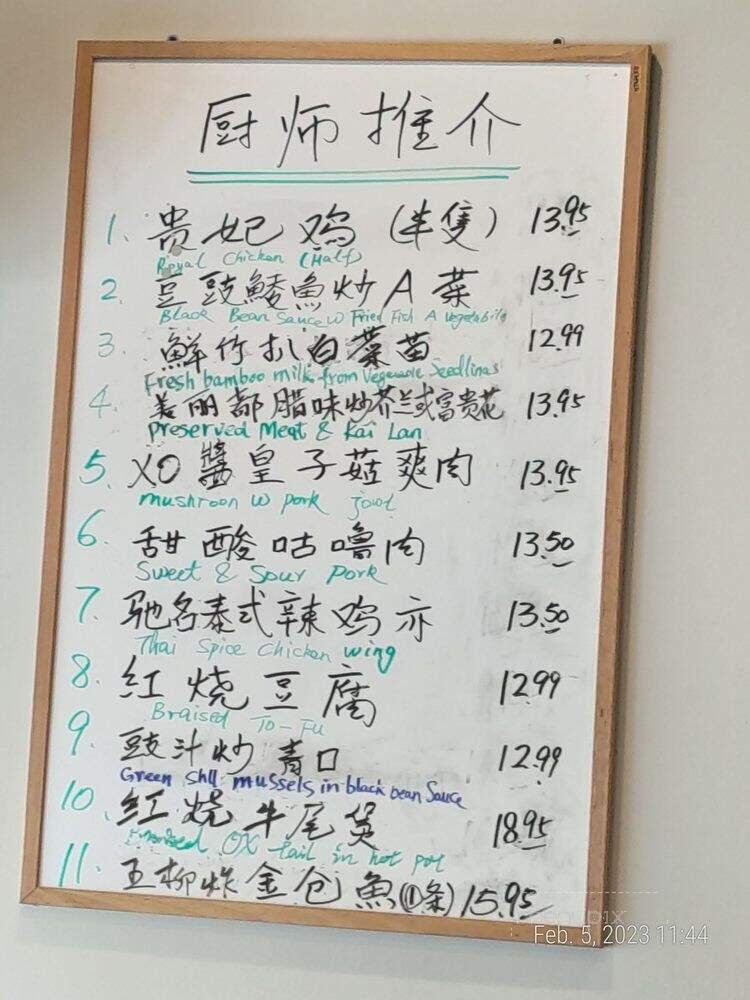 厨师推介
1. 贵妃鸡(半隻) 13.95
Royal Chicken (Half)
2. 豆豉鯪魚炒A菜 13.95
Black Bean Sauce w Fried Fish A Vegetable
3. 鮮竹扒白菜苗 12.99
Fresh bamboo milk from Vegetable Seedlings
4. 美丽都腊味炒芥兰或富贵花 13.95
Preserved Meat & Kai Lan
5. XO醬皇子菇爽肉 13.95
mushroon w pork jowl
6. 甜酸咕嚕肉 13.50
Sweet & Sour pork
7. 驰名泰式辣鸡亦 13.50
Thai Spice Chicken wing
8. 紅烧豆腐 12.99
Braised To-Fu
9. 豉汁炒青口 12.99
Green Shll mussels in black bean Sauce
10. 紅烧牛尾煲 18.95
OX tail in hot pot
11. 五柳炸金仓魚(1条) 15.95
Feb. 5, 2023 11:44